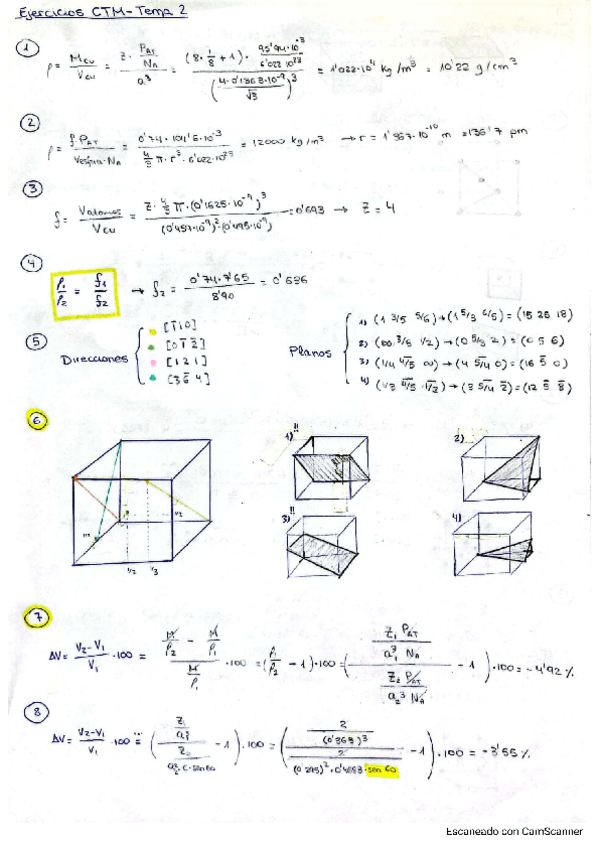 Ejercicios CTM - Tema 2
① ρ = Mcu/Vcu = (z · PAT/NA)/a³ = ((8 · 1/8 + 1) · 95'94·10⁻³/6'022·10²³)/((4·0'1363·10⁻⁹/√3)³) = 1'022·10⁴ kg/m³ = 10'22 g/cm³
②
ρ = f·PAT/(Vesfera·NA) = 0'74 · 10⁻³/(4/3 π · r³ · 6'022·10²³) = 12000 kg/m³ → r = 10⁻¹⁰ m = 136'7 pm
③
f = Vátomos/Vcu = (z · 4/3 π · (0'1625·10⁻⁹)³)/((0'457·10⁻⁹)²·(0'495·10⁻⁹)) = 0'693 → z = 4
④
ρ₁/ρ₂ = f₁/f₂ → f₂ = 0'74·7'65/8'90 = 0'636
⑤ Direcciones
[1̄10]
[01̄3̄]
[121]
[36̄4]
Planos
1) (1 3/5 5/6) → (1 5/3 6/5) = (15 25 18)
2) (∞ 3/5 1/2) → (0 5/3 2) = (0 5 6)
3) (1/4 4̄/5 ∞) → (4 5̄/4 0) = (16 5̄ 0)
4) (1/3 4̄/5 1̄/2) → (3 5̄/4 2̄) = (12 5̄ 8̄)
⑥
1) !!
2)
3) !!
4)
1/2
1/2
1/3
⑦
ΔV = (V₂-V₁)/V₁ · 100 = (M/ρ₂ - M/ρ₁)/(M/ρ₁) · 100 = (ρ₁/ρ₂ - 1)·100 = ((z₁ PAT/(a₁³ NA))/(z₂ PAT/(a₂³ NA)) - 1)·100 = -4'92 %
⑧
ΔV = (V₂-V₁)/V₁ · 100 = ((z₁/a₁³)/(z₂/(a₂² · c · sen60)) - 1)·100 = ((2/(0')³)/(2/((0'295)² · 0'4683 · sen 60)) - 1)·100 = -3'55 %
Escaneado con CamScanner